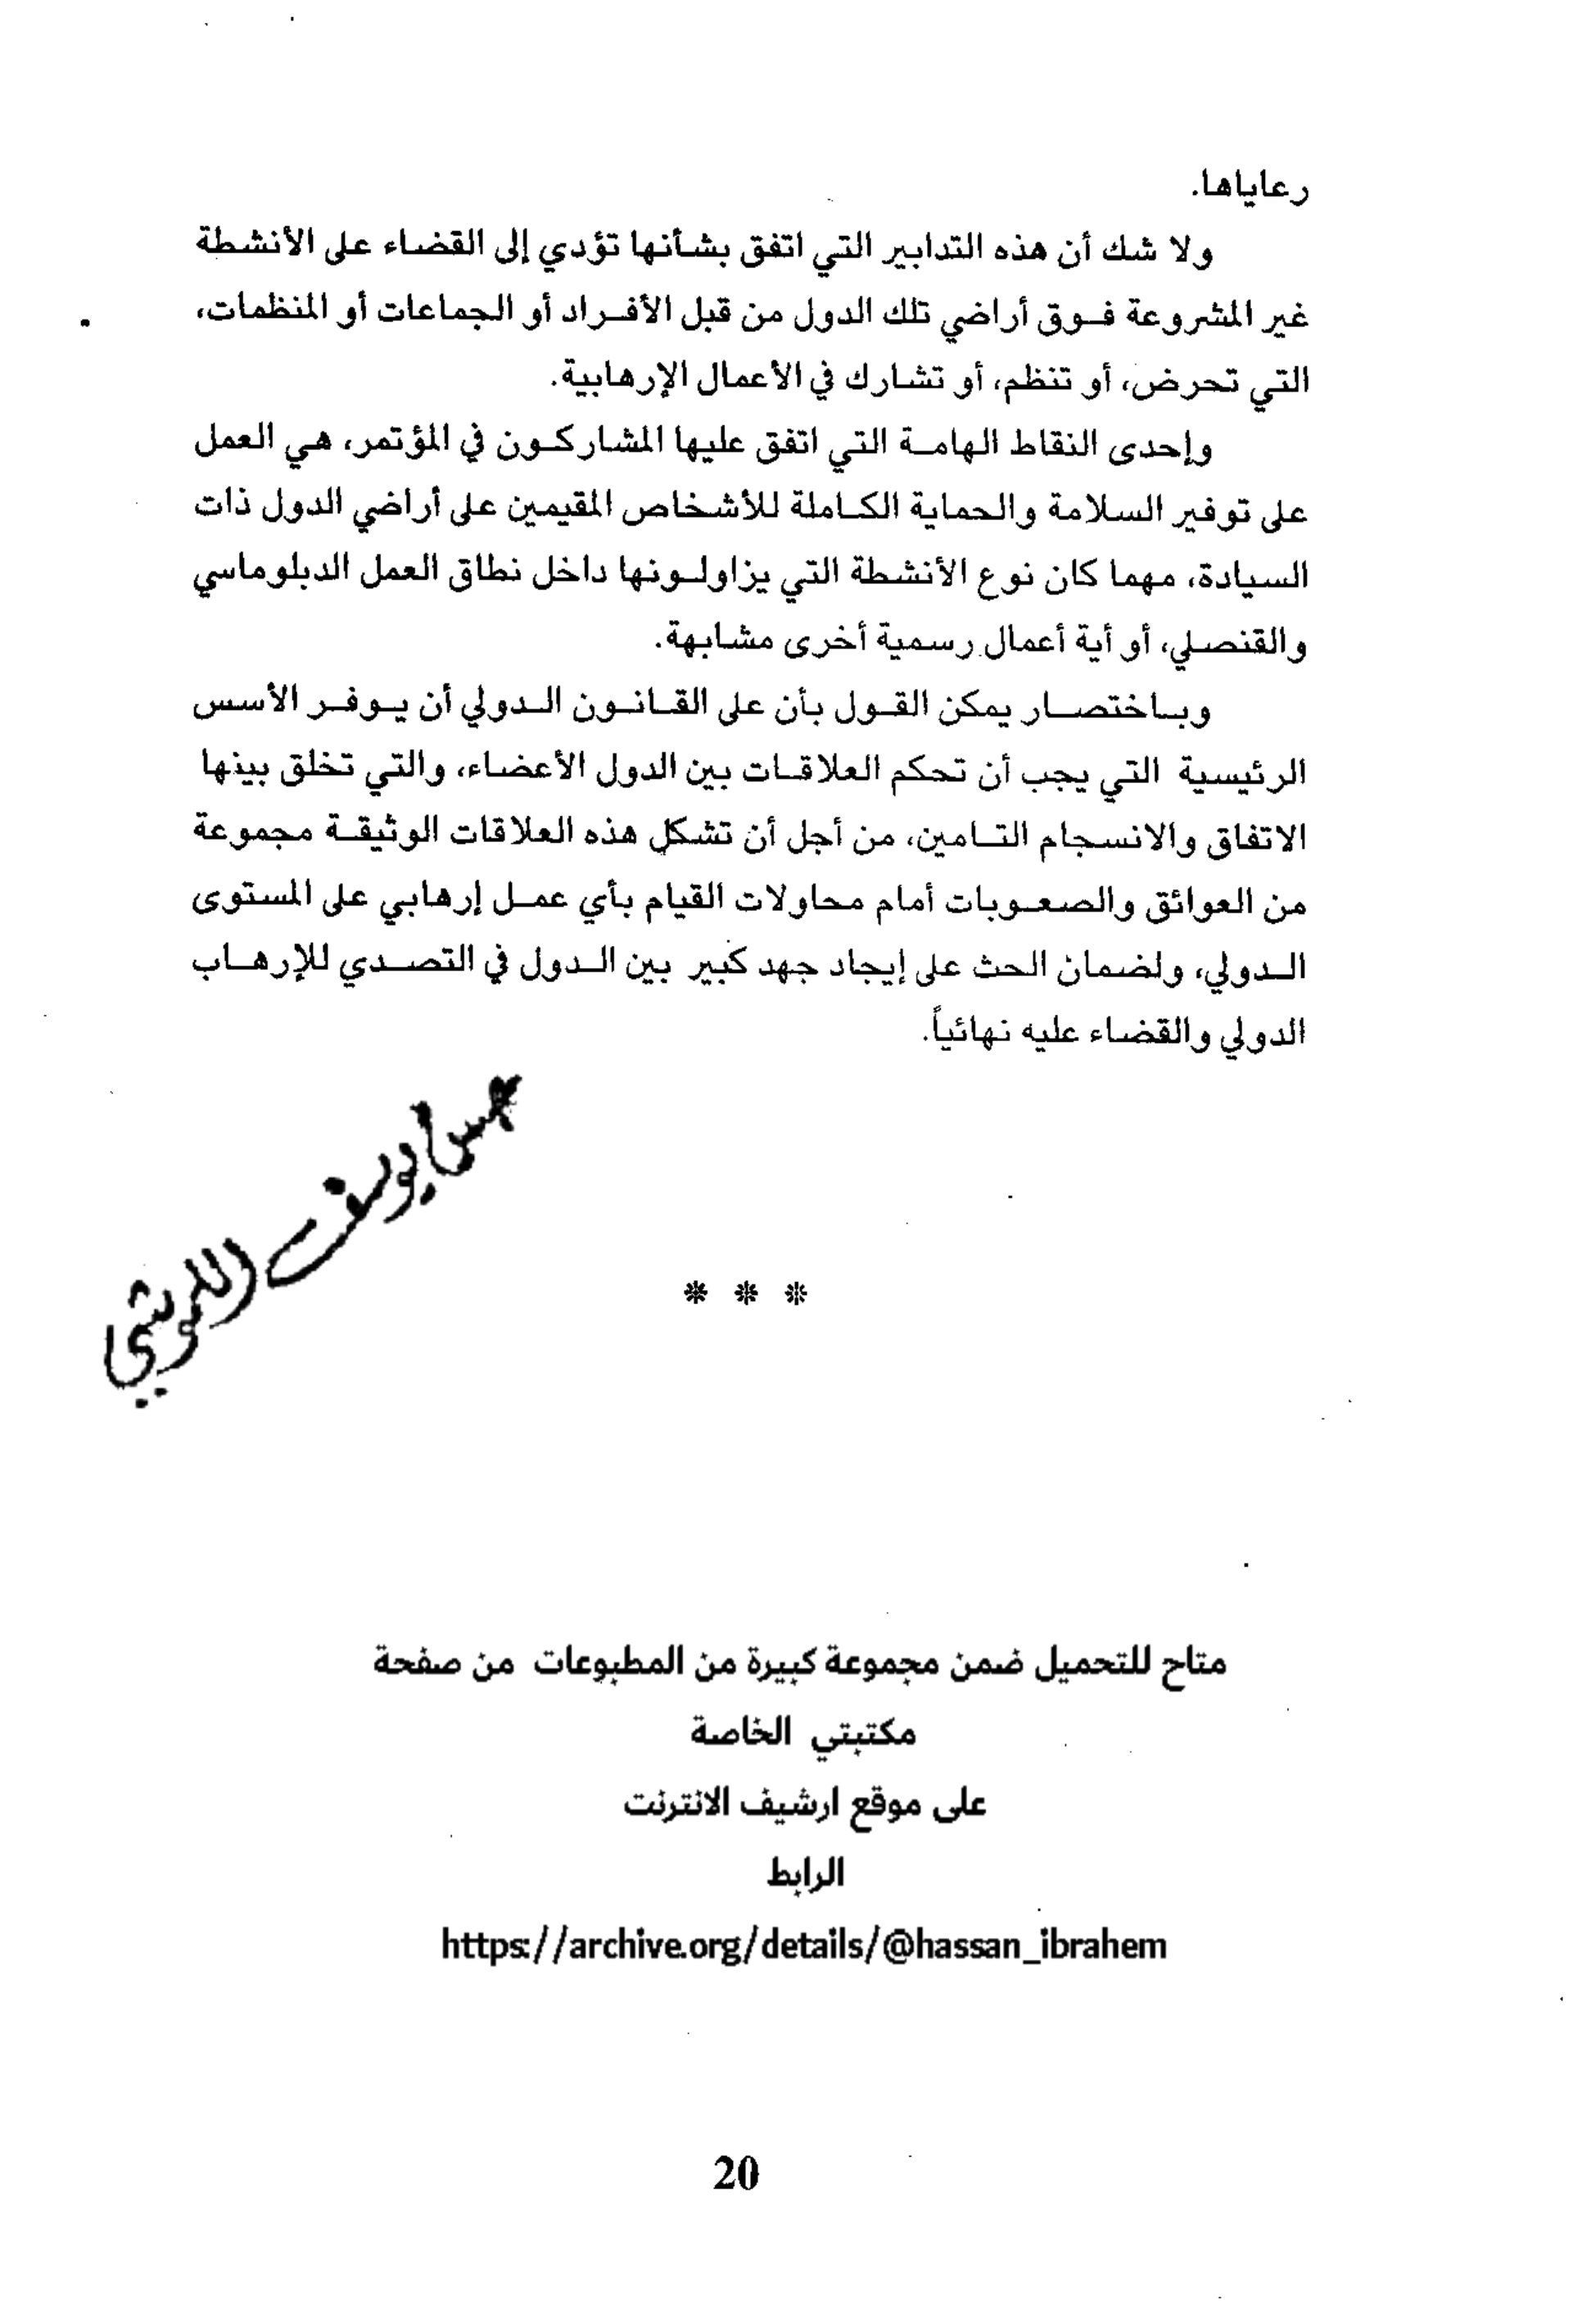 رعاياها.
ولا شك أن هذه التدابير التي اتفق بشأنها تؤدي إلى القضاء على الأنشطة
غير المشروعة فوق أراضي تلك الدول من قبل الأفراد أو الجماعات أو المنظمات،
التي تحرض، أو تنظم، أو تشارك في الأعمال الإرهابية.
وإحدى النقاط الهامة التي اتفق عليها المشاركون في المؤتمر، هي العمل
على توفير السلامة والحماية الكاملة للأشخاص المقيمين على أراضي الدول ذات
السيادة، مهما كان نوع الأنشطة التي يزاولونها داخل نطاق العمل الدبلوماسي
والقنصلي، أو أية أعمال رسمية أخرى مشابهة.
وباختصار يمكن القول بأن على القانون الدولي أن يوفر الأسس
الرئيسية التي يجب أن تحكم العلاقات بين الدول الأعضاء، والتي تخلق بينها
الاتفاق والانسجام التامين، من أجل أن تشكل هذه العلاقات الوثيقة مجموعة
من العوائق والصعوبات أمام محاولات القيام بأي عمل إرهابي على المستوى
الدولي، ولضمان الحث على إيجاد جهد كبير بين الدول في التصدي للإرهاب
الدولي والقضاء عليه نهائياً.
يوسف
* * *
متاح للتحميل ضمن مجموعة كبيرة من المطبوعات من صفحة
مكتبتي الخاصة
على موقع ارشيف الانترنت
الرابط
https://archive.org/details/@hassan_ibrahem
20